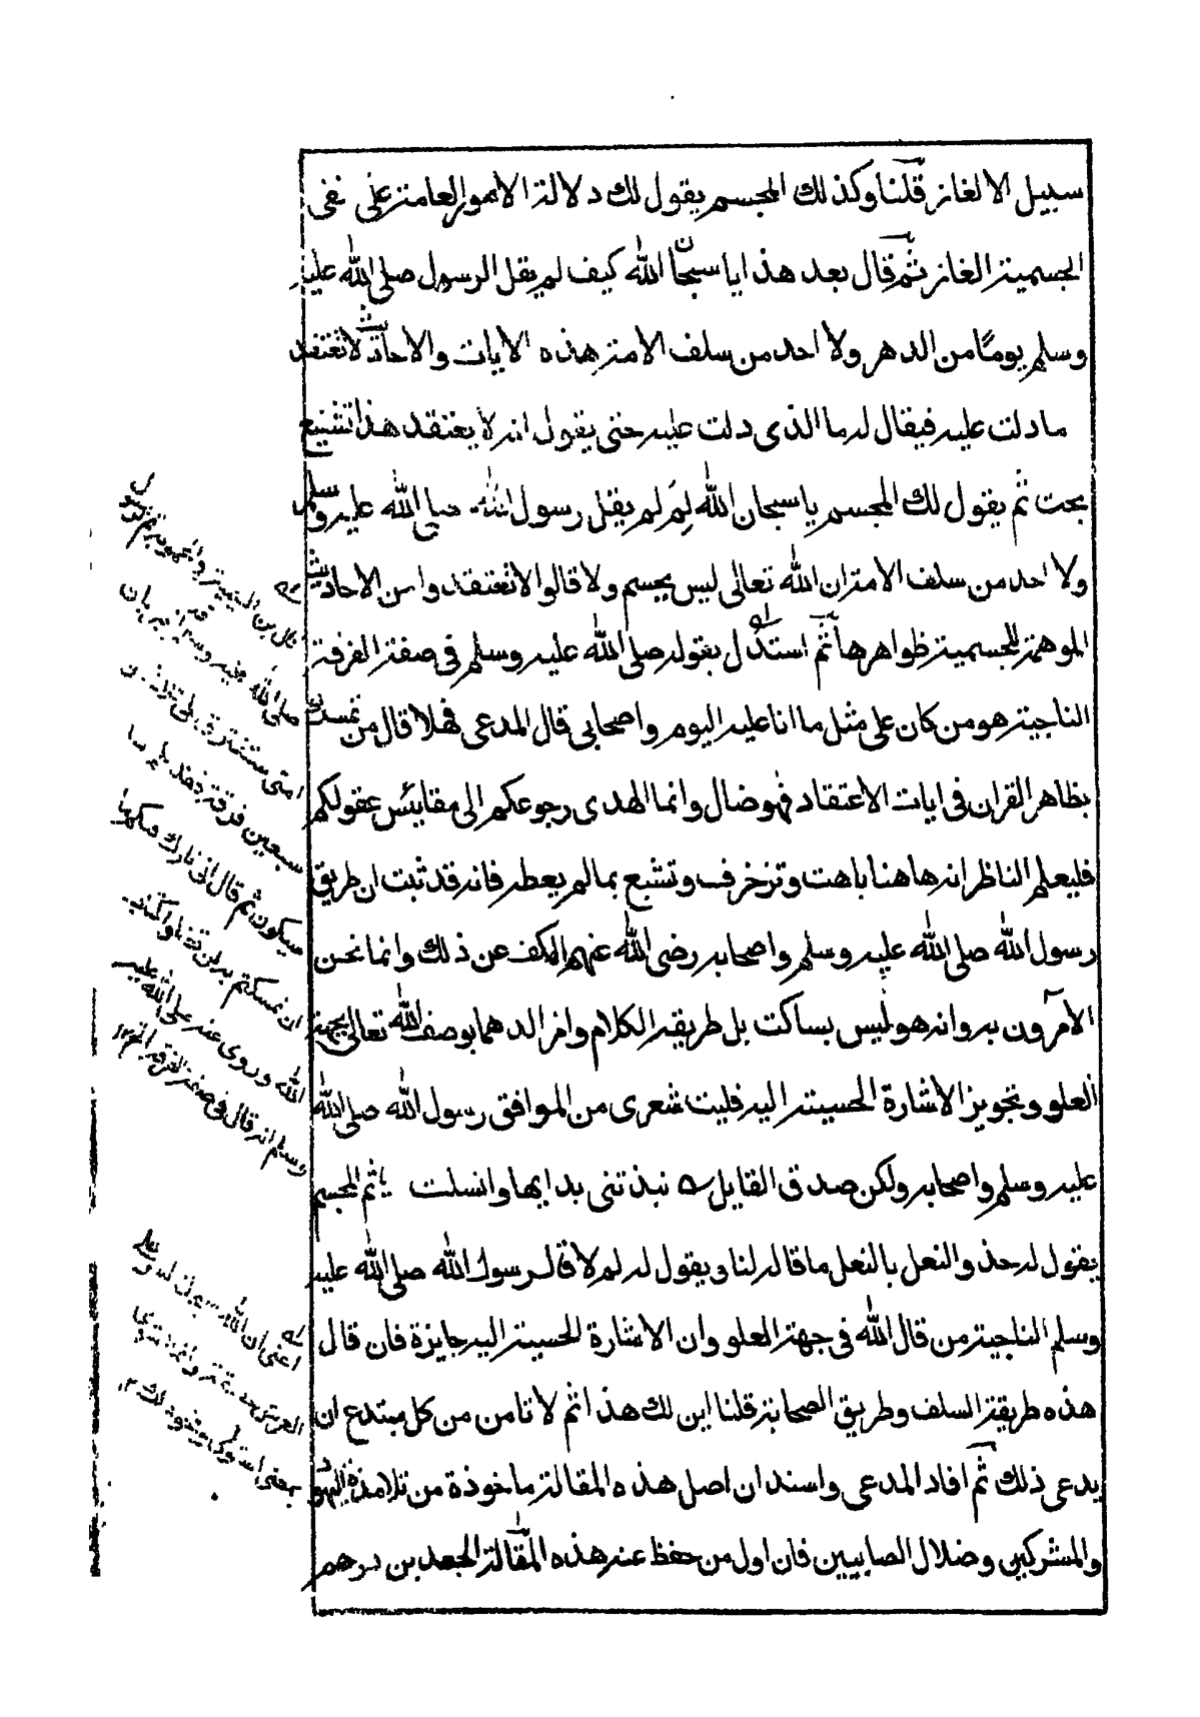 سبيل الالغاز قلنا وكذلك المجسم يقول لك دلالة الامور العامة على نفى
الجسمية الغاز ثم قال بعد هذا يا سبحان الله كيف لم يقل الرسول صلى الله عليه
وسلم يومًا من الدهر ولا احد من سلف الامة هذه الايات والاحاديث لا تعتقدوا
ما دلت عليه فيقال له ما الذى دلت عليه حتى يقول انه لا يعتقد هذا تشنيع
بحت ثم يقول لك المجسم يا سبحان الله لِمَ لم يقل رسول الله صلى الله عليه وسلم
ولا احد من سلف الامة ان الله تعالى ليس بجسم ولا قالوا لا تعتقدوا من الاحاديث
الموهمة للجسمية ظواهرها ثم استدل بقوله صلى الله عليه وسلم فى صفة الفرقة
الناجية هو من كان على مثل ما انا عليه اليوم واصحابى قال المدعى فهلا قال من تمسك
بظاهر القران فى ايات الاعتقاد فهو ضال وانما الهدى رجوعكم الى مقائيس عقولكم
فليعلم الناظر انه هاهنا باهت وتزخرف وتشبع بما لم يعطه فانه قد ثبت ان طريق
رسول الله صلى الله عليه وسلم واصحابه رضى الله عنهم الكف عن ذلك وانما نحن
الآمرون به وانه هو ليس بساكت بل طريقه الكلام وامر الدهما بوصف الله تعالى بجهة
العلو وتجويز الاشارة الحسية اليه فليت شعرى من الموافق رسول الله صلى الله
عليه وسلم واصحابه ولكن صدق القايل نبذتنى بدايها وانسلت ثم المجسم
يقول له حذو النعل بالنعل ما قاله لنا ويقول له لم لا قال رسول الله صلى الله عليه
وسلم الناجية من قال الله فى جهة العلو وان الاشارة الحسية اليه جايزة فان قال
هذه طريقة السلف وطريق الصحابة قلنا اين لك هذا ثم لا تامن من كل مبتدع ان
يدعى ذلك ثم افاد المدعى واسند ان اصل هذه المقالة ماخوذة من تلامذة اليهود
والمشركين وضلال الصابيين فان اول من حفظ عنه هذه المقالة الجعد بن درهم
صلى الله عليه وسلم
سبعين فرقة فقد
سيكون ثم قال انى تارك فيكم ما
ان تمسكتم به لن تضلوا كتاب
الله وروى عنه صلى الله عليه
وسلم انه قال فى صفة الفرقة
اعنى ان الله
العرش